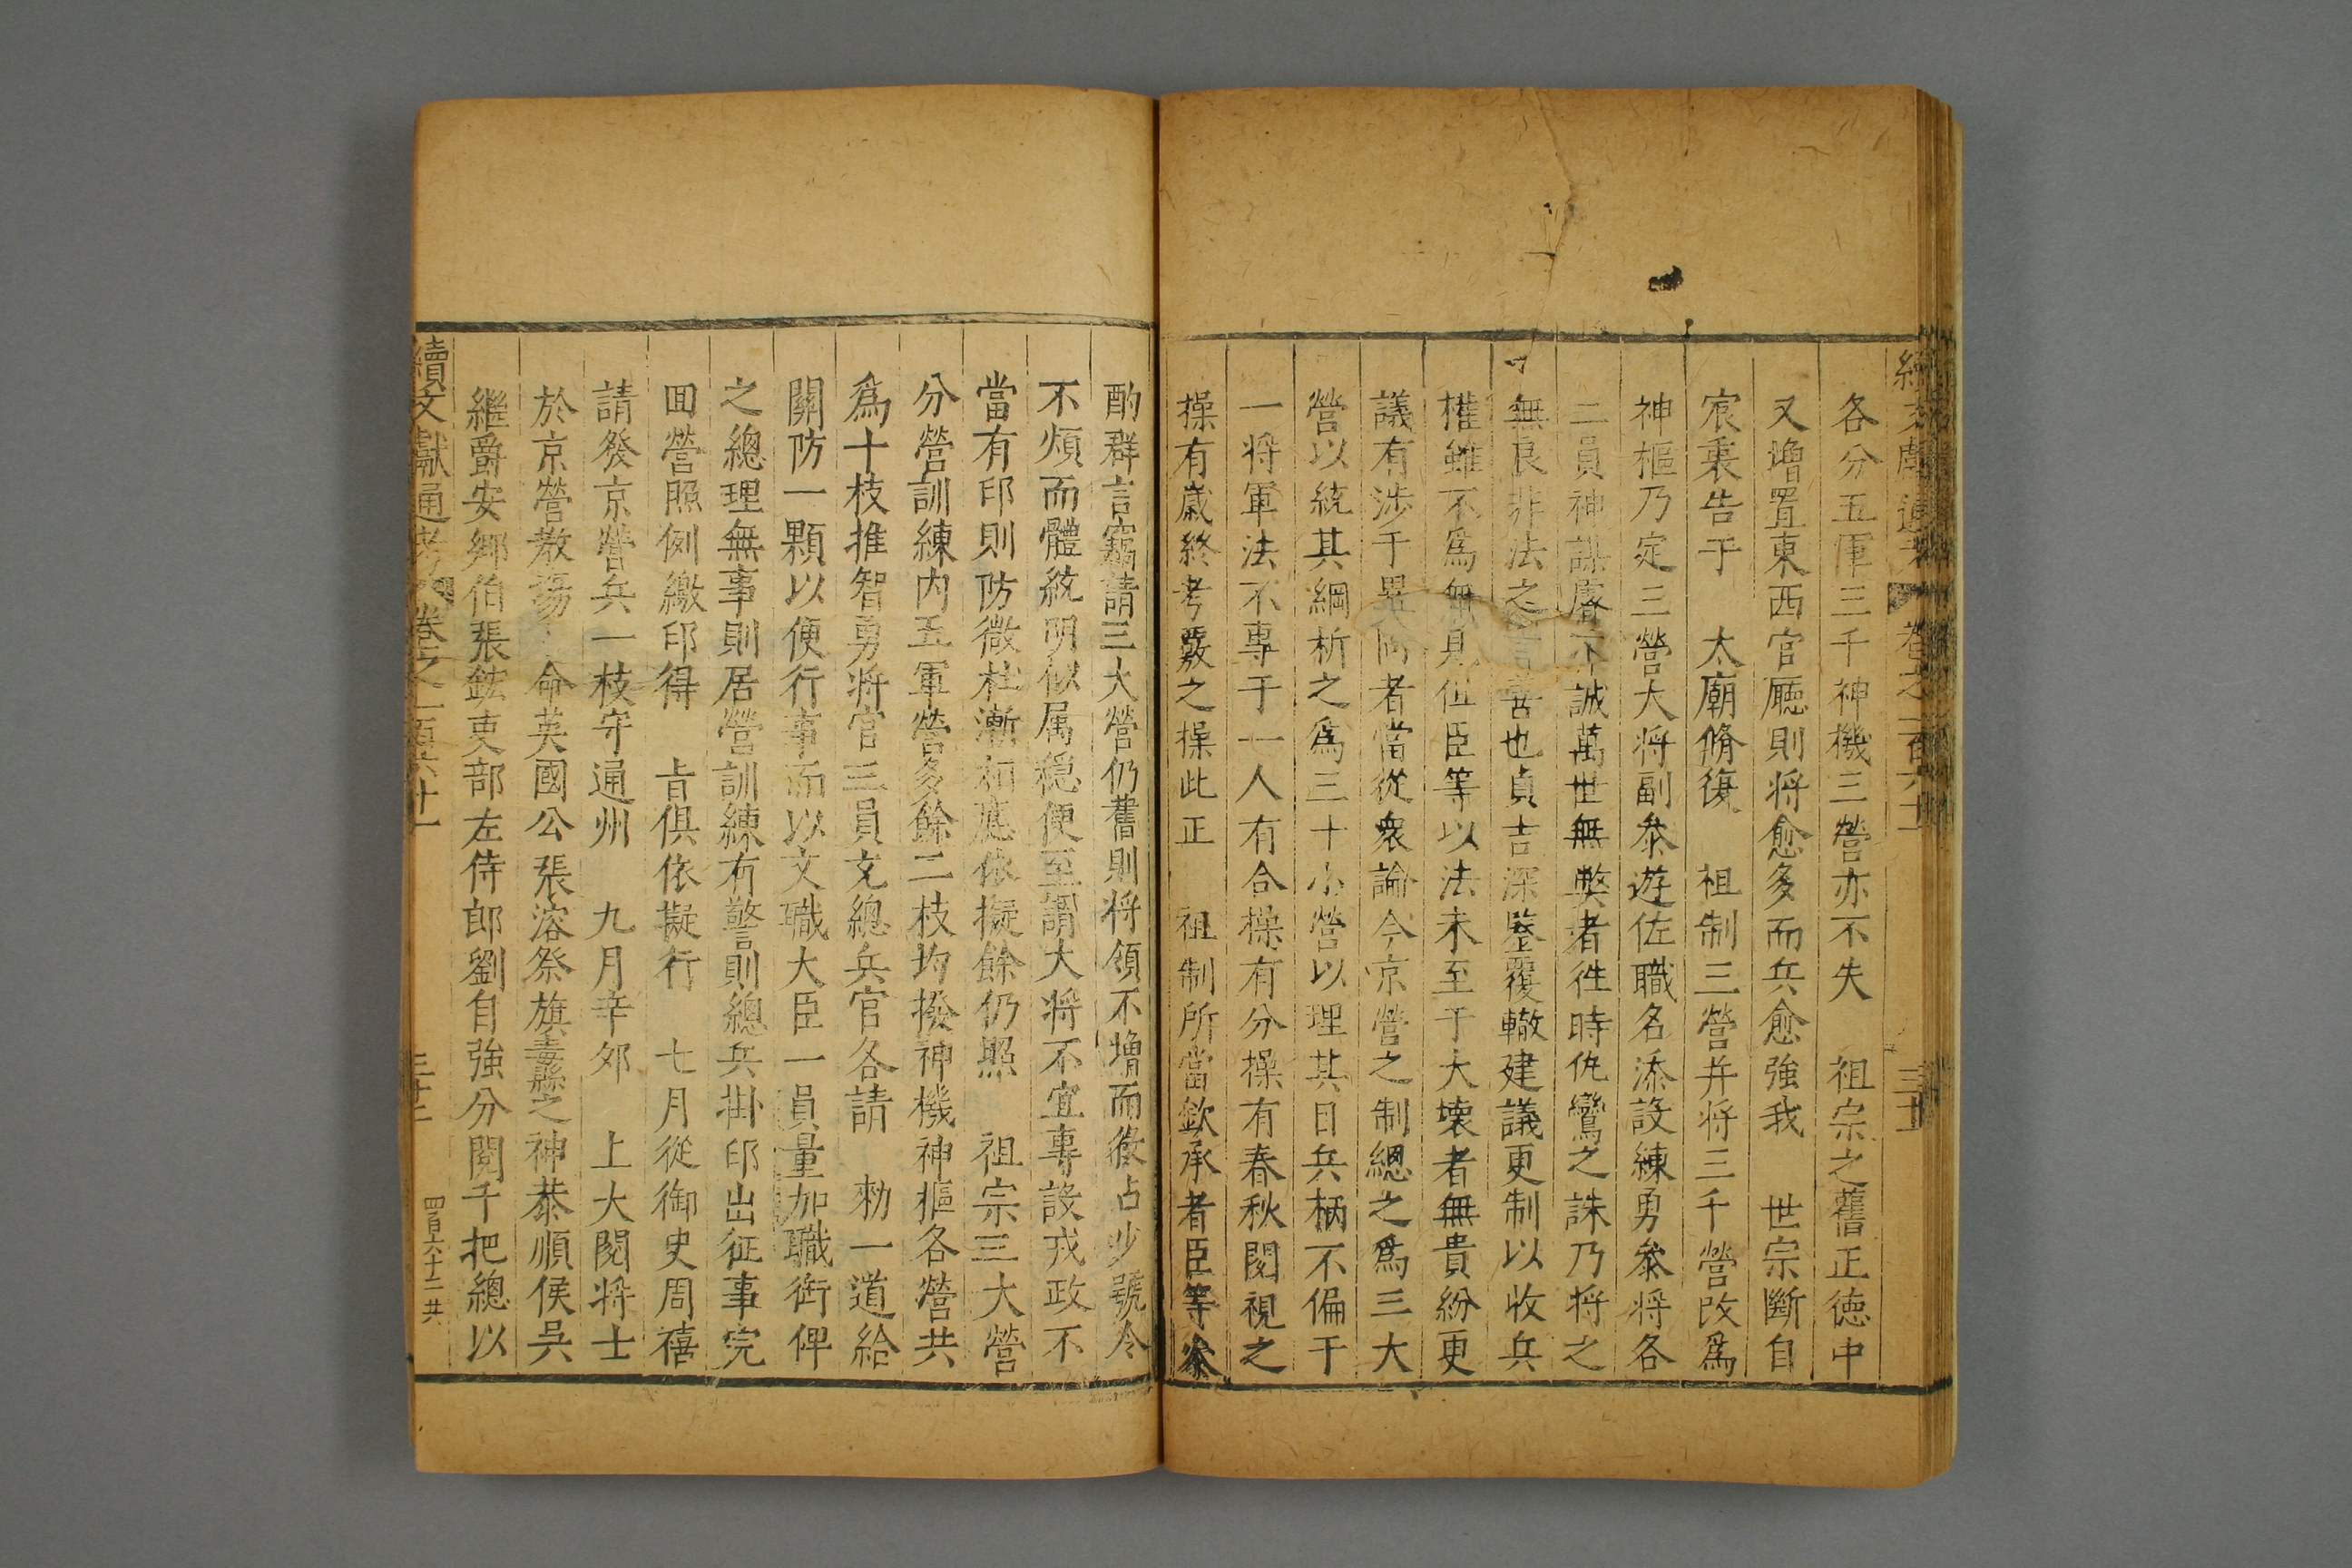 續文獻通考 卷之一百六十一 三十
各分五軍三千神機三營亦不失 祖宗之舊正德中
又增置東西官廳則将愈多而兵愈強我 世宗斷自
宸衷告于 太廟脩復 祖制三營并将三千營改爲
神樞乃定三營大将副叅遊佐職名添設練勇叅将各
二員神謀睿 誠萬世無弊者徃時仇鸞之誅乃将之
無良非法之 善也貞吉深鑒覆轍建議更制以收兵
權雖不爲無見但臣等以法未至于大壞者無貴紛更
議有涉于異同者當從衆論今京營之制總之爲三大
營以統其綱析之爲三十小營以理其目兵柄不偏于
一将軍法不專于一人有合操有分操有春秋閱視之
操有歲終考覈之操此正 祖制所當欽承者臣等叅
酌群言竊請三大營仍舊則将領不增而徵占少號令
不煩而體統明似属穩便至謂大将不宜專設戎政不
當有印則防微杜漸相應依擬餘仍照 祖宗三大營
分營訓練内五軍營多餘二枝均撥神機神樞各營共
爲十枝推智勇将官三員充總兵官各請 勑一道給
關防一顆以便行事而以文職大臣一員量加職銜俾
之總理無事則居營訓練有警則總兵掛印出征事完
囬營照例繳印得 旨俱依擬行 七月從御史周禧
請發京營兵一枝守通州 九月辛夘 上大閱将士
於京營教場 命英國公張溶祭旗纛之神恭順侯吳
繼爵安鄉伯張鋐吏部左侍郎劉自強分閱千把總以
續文獻通考 卷之一百六十一 三十一 四百六十二 共